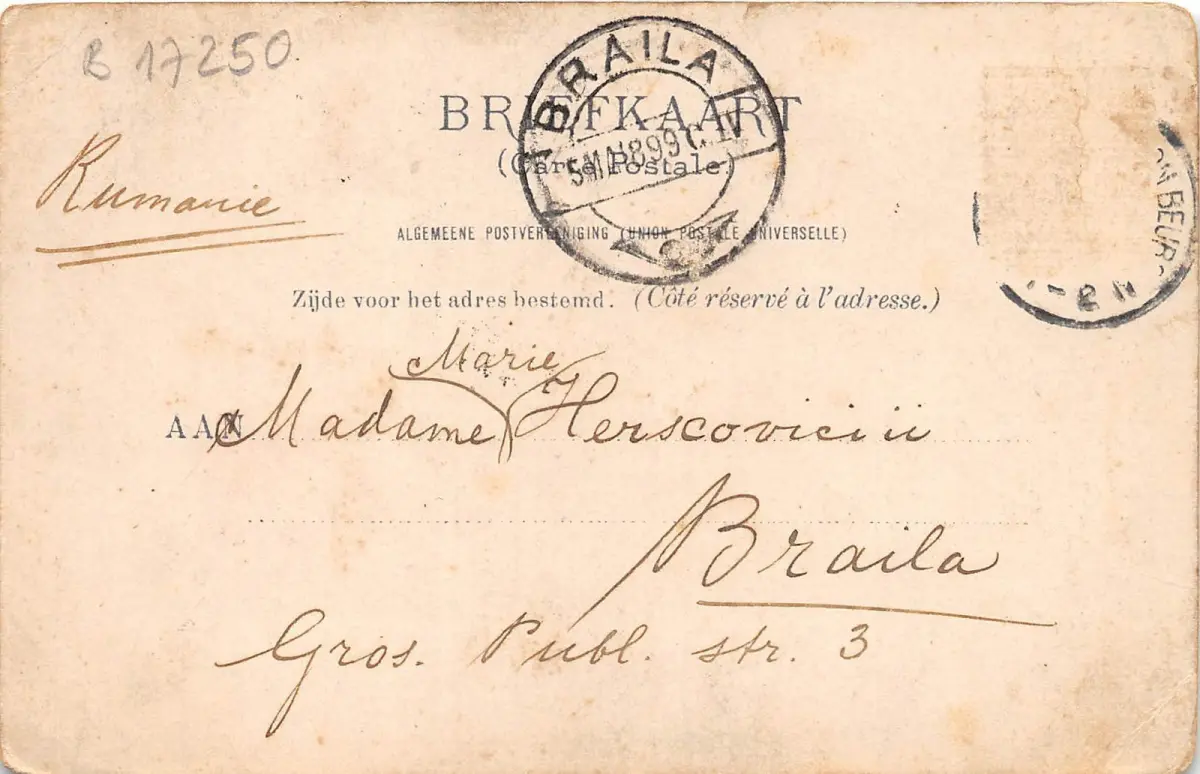 B 17250
BRAILA
BRIEFKAART
(Carte Postale)
Rumanie
ALGEMEENE POSTVEREENIGING (UNION POSTALE UNIVERSELLE)
Zijde voor het adres bestemd. (Côté réservé à l'adresse.)
Marie
AAN Madame Herscovici ii
Braila
Gros. Publ. str. 3